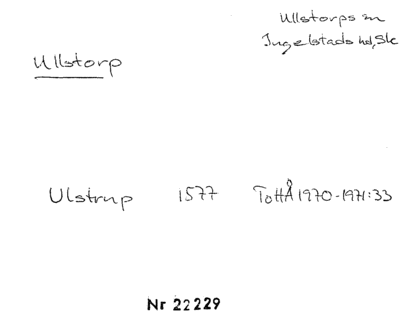 Ullstorps sn
Ingelstads hd, Sk
Ullstorp
Ulstrup 1577 TottÅ 1970-1971:33
Nr 22229